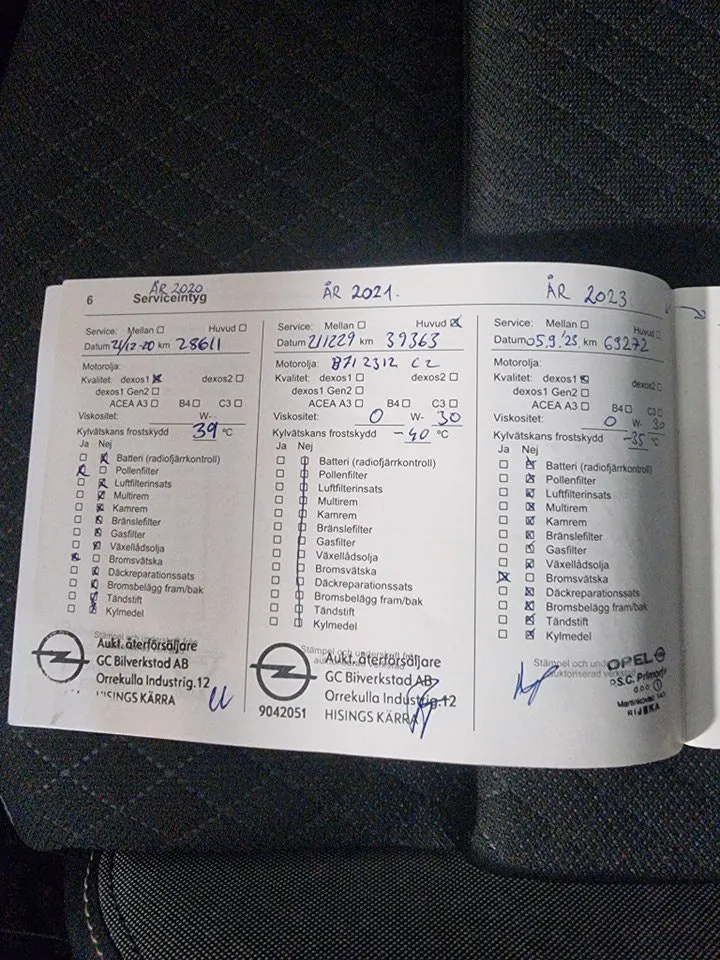 6
ÅR 2020
Serviceintyg
Service: Mellan Huvud
Datum 21/12-20 km 28611
Motorolja:
Kvalitet: dexos1 dexos2
dexos1 Gen2
ACEA A3 B4 C3
Viskositet: W-
Kylvätskans frostskydd 39 °C
Ja Nej
Batteri (radiofjärrkontroll)
Pollenfilter
Luftfilterinsats
Multirem
Kamrem
Bränslefilter
Gasfilter
Växellådsolja
Bromsvätska
Däckreparationssats
Bromsbelägg fram/bak
Tändstift
Kylmedel
Aukt. återförsäljare
GC Bilverkstad AB
Orrekulla Industrig.12
HISINGS KÄRRA
ÅR 2021.
Service: Mellan Huvud
Datum 211229 km 39363
Motorolja: B712312 C2
Kvalitet: dexos1 dexos2
dexos1 Gen2
ACEA A3 B4 C3
Viskositet: 0 W- 30
Kylvätskans frostskydd -40 °C
Ja Nej
Batteri (radiofjärrkontroll)
Pollenfilter
Luftfilterinsats
Multirem
Kamrem
Bränslefilter
Gasfilter
Växellådsolja
Bromsvätska
Däckreparationssats
Bromsbelägg fram/bak
Tändstift
Kylmedel
Stämpel och underskrift från
auktoriserad verkstad
Aukt. återförsäljare
GC Bilverkstad AB
Orrekulla Industrig.12
9042051 HISINGS KÄRRA
ÅR 2023
Service: Mellan Huvud
Datum 05.9.23. km 69272
Motorolja:
Kvalitet: dexos1 dexos2
dexos1 Gen2
ACEA A3 B4 C3
Viskositet: 0 W- 30
Kylvätskans frostskydd -35 °C
Ja Nej
Batteri (radiofjärrkontroll)
Pollenfilter
Luftfilterinsats
Multirem
Kamrem
Bränslefilter
Gasfilter
Växellådsolja
Bromsvätska
Däckreparationssats
Bromsbelägg fram/bak
Tändstift
Kylmedel
Stämpel och
auktoriserad verkstad
OPEL
P.S.C. Primorje
d.o.o.
RIJEKA